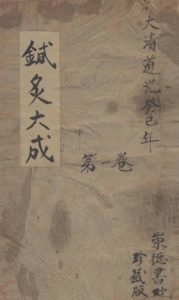 大清道光癸巳年
鍼灸大成
第一卷
崇德書
珍藏版